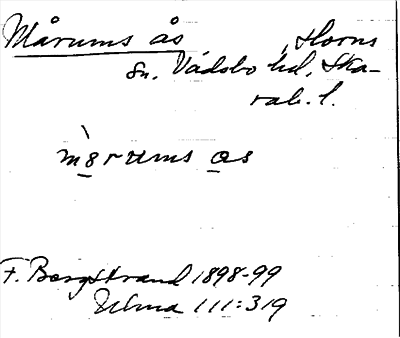 Mårums ås, Horns
sn. Vadsbo hd, Ska-
rab. l.
m8̀rums as
F. Bergstrand 1898-99
Ulma 111:319